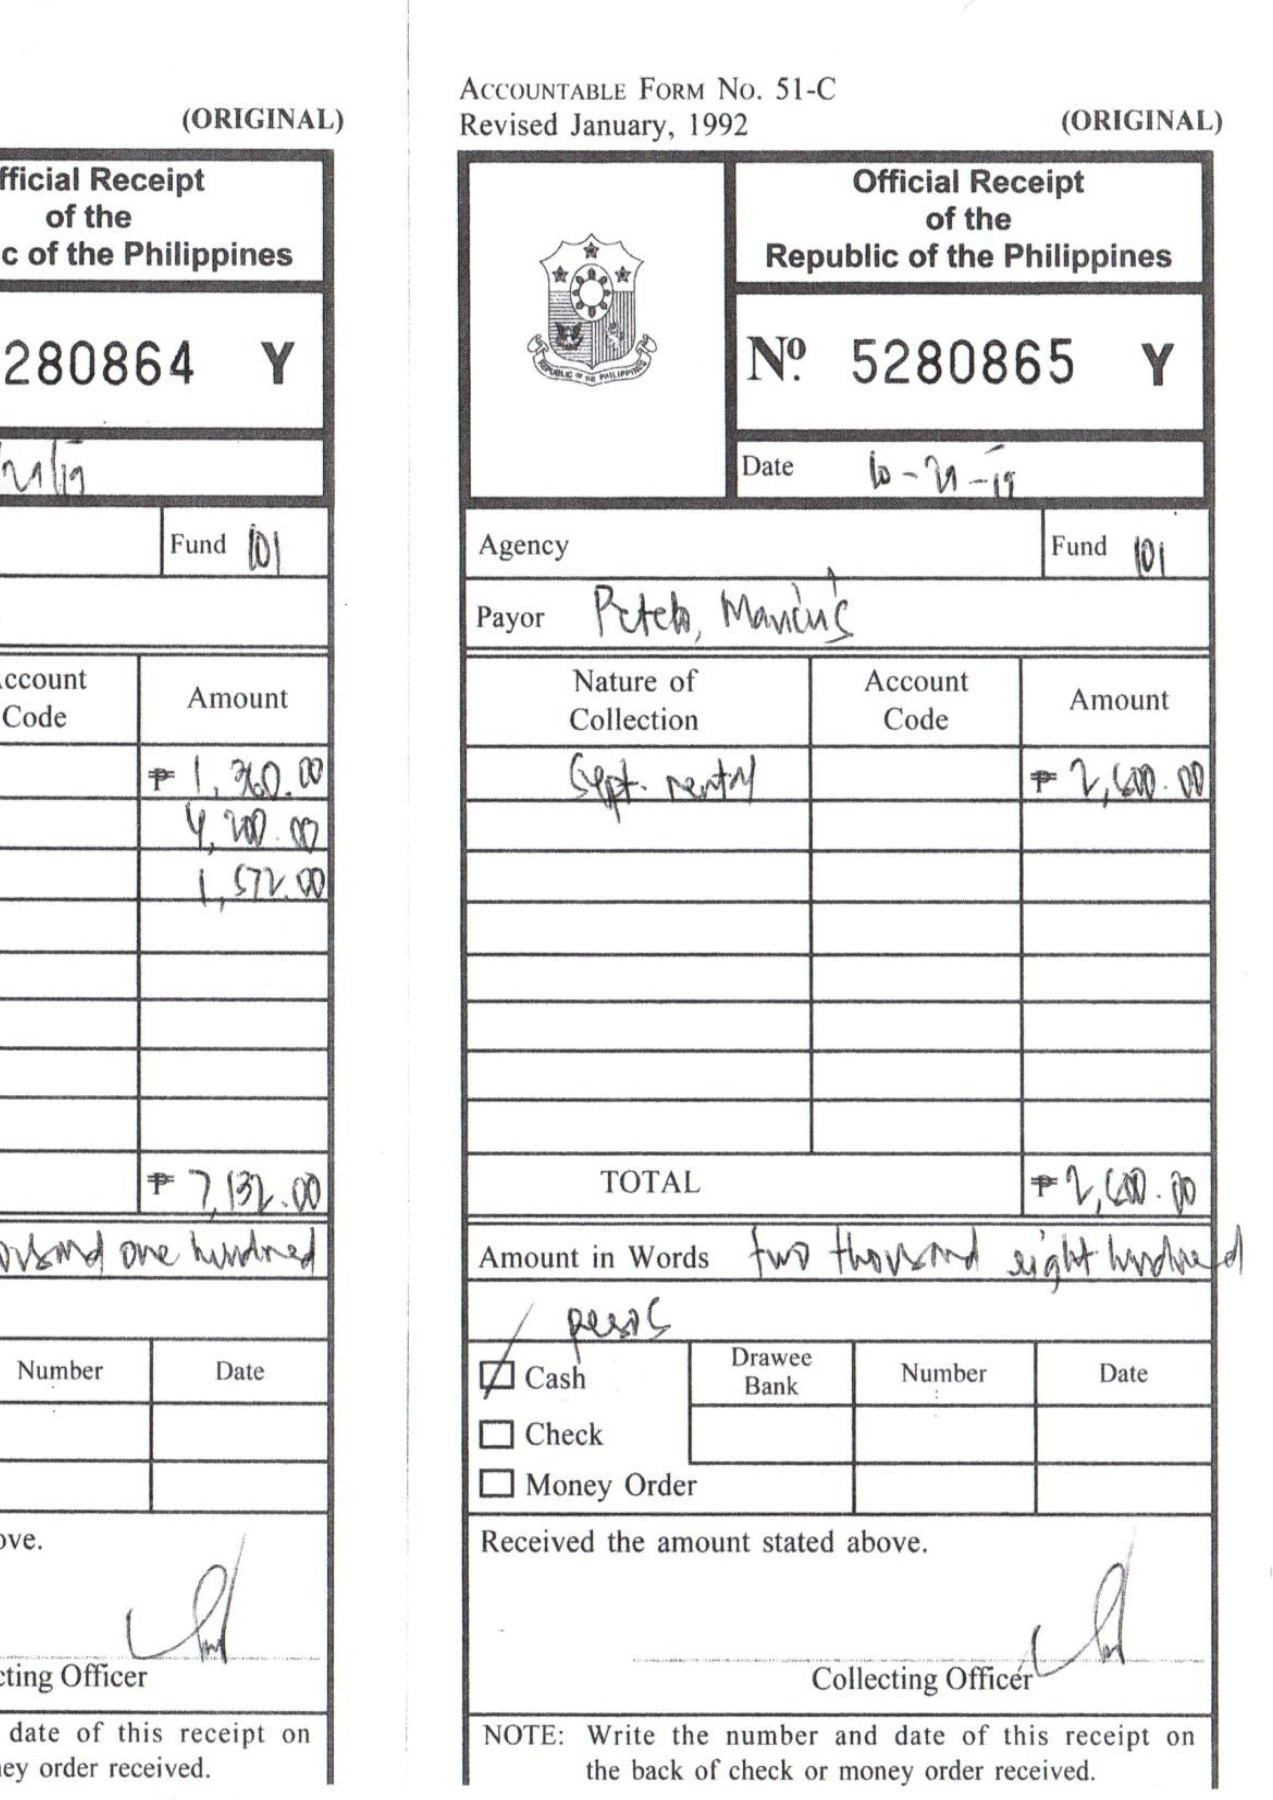 (ORIGINAL)
fficial Receipt
of the
c of the Philippines
280864 Y
/21/19
Fund 101
ccount
Code
Amount
₱ 1,360.00
4,200.00
1,572.00
₱ 7,132.00
ousand one hundred
Number Date
ove.
cting Officer
date of this receipt on
ey order received.
ACCOUNTABLE FORM NO. 51-C
Revised January, 1992
(ORIGINAL)
Official Receipt
of the
Republic of the Philippines
REPUBLIC OF THE PHILIPPINES
Nº 5280865 Y
Date 10-21-19
Agency
Fund 101
Payor
Nature of
Collection
Account
Code
Amount
Sept. rental ₱ 2,800.00
TOTAL ₱ 2,800.00
Amount in Words two thousand eight hundred
pesos
Cash
Check
Money Order
Drawee
Bank
Number
Date
Received the amount stated above.
Collecting Officer
NOTE: Write the number and date of this receipt on
the back of check or money order received.